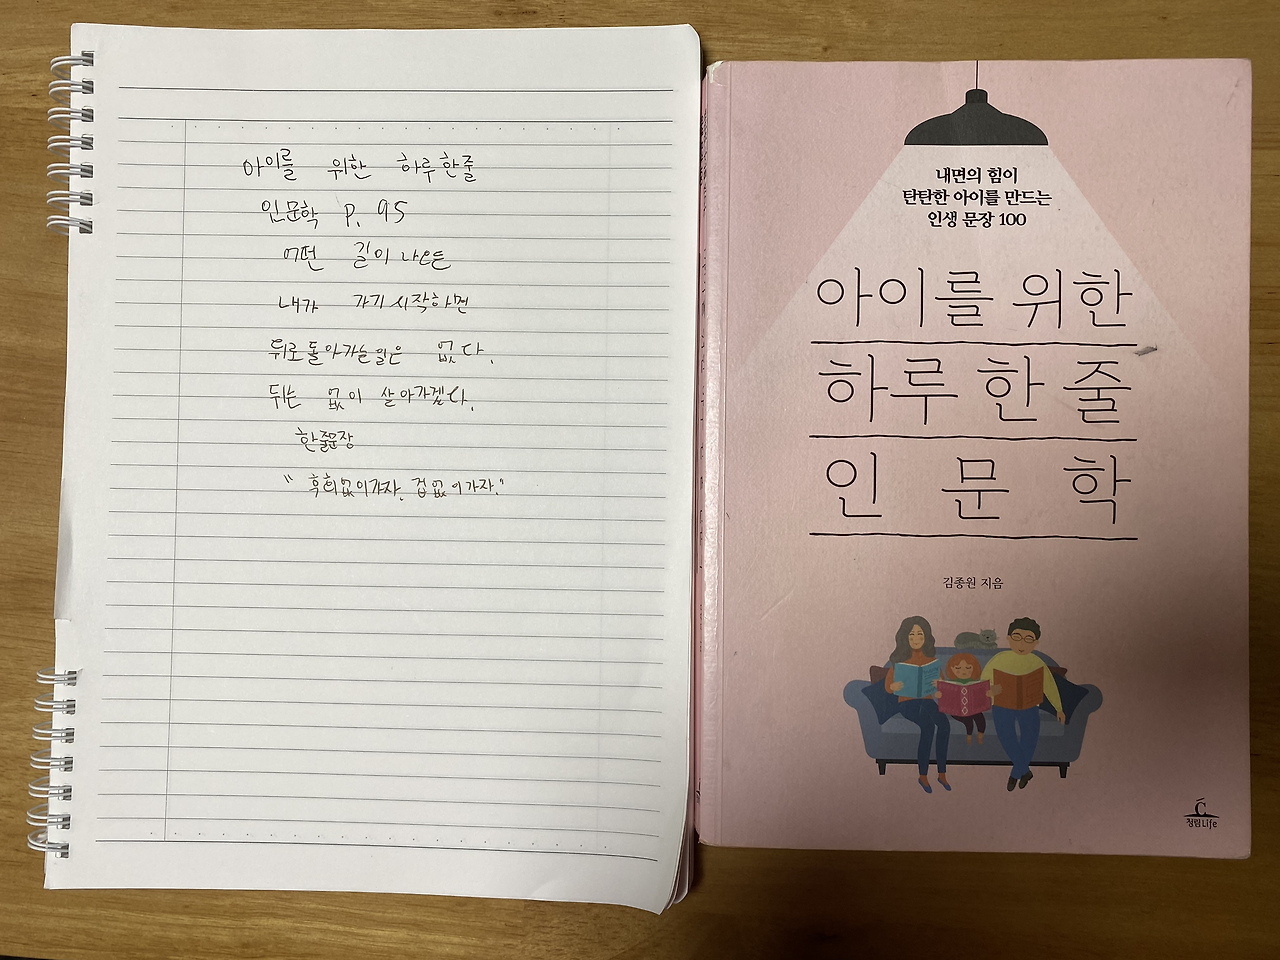 아이를 위한 하루 한줄
인문학 P. 95
어떤 길이 나오든
내가 가기 시작하면
뒤로 돌아가는 일은 없다.
뒤는 없이 살아가겠다.
한줄문장
"후회없이가자. 겁없이가자."
내면의 힘이
탄탄한 아이를 만드는
인생 문장 100
아이를 위한
하루 한 줄
인문학
김종원 지음
청림Life